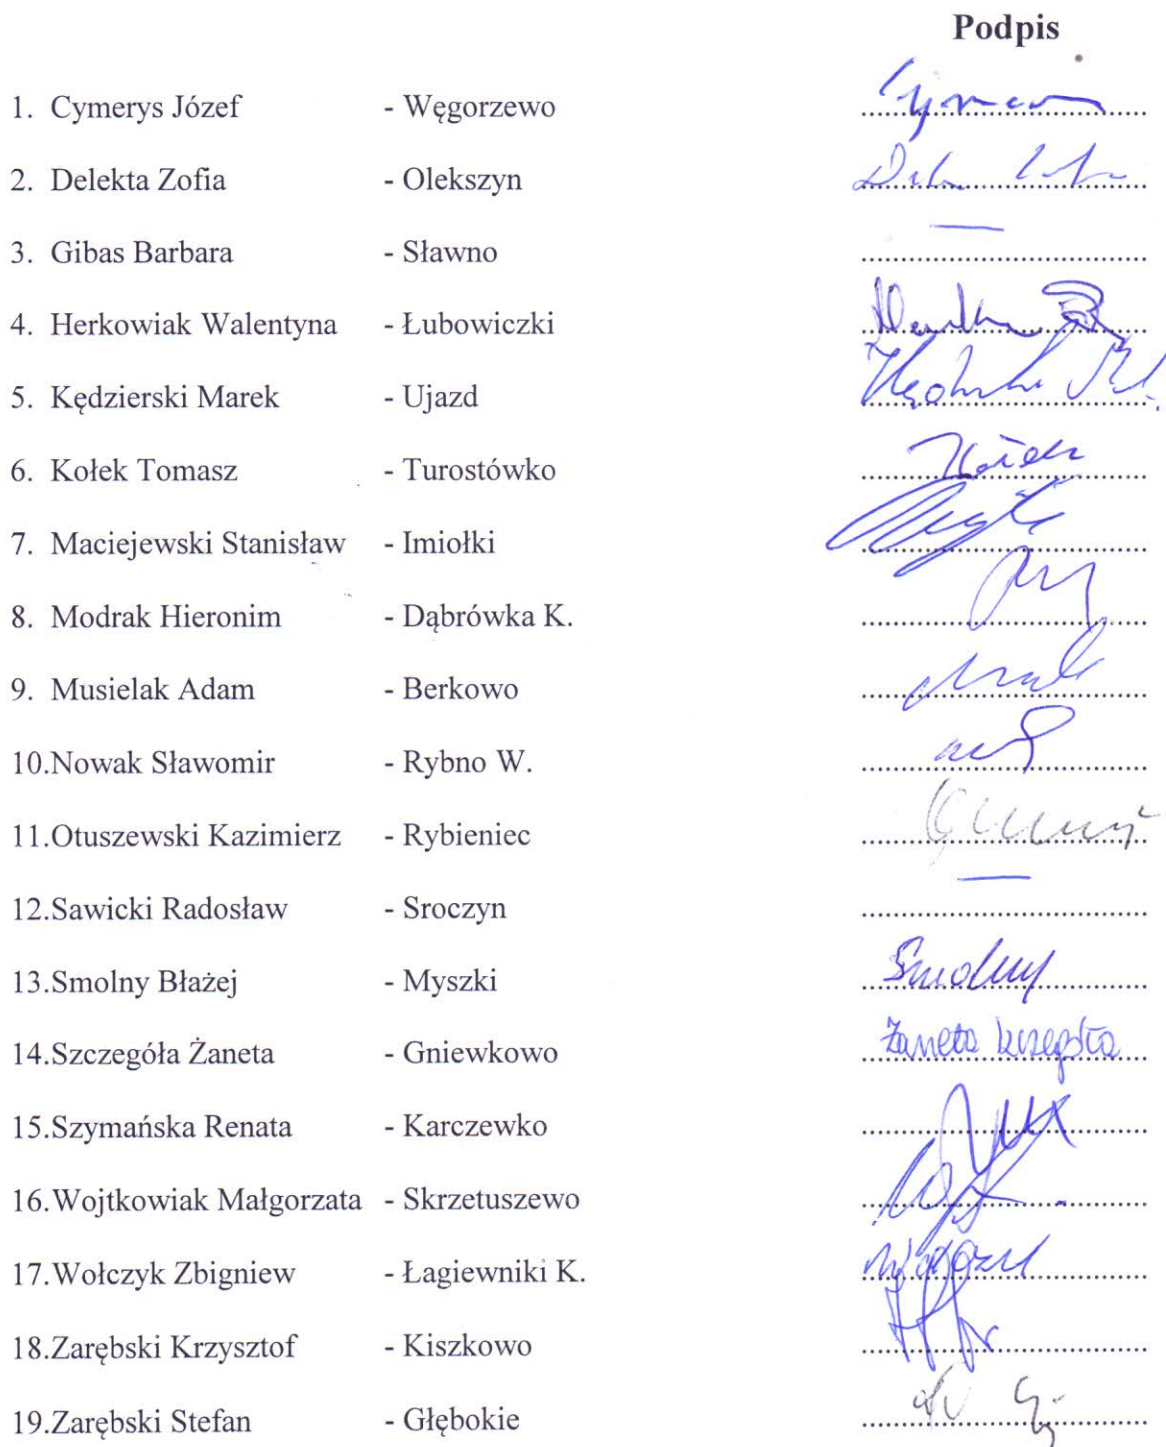 Podpis
1. Cymerys Józef - Węgorzewo
2. Delekta Zofia - Olekszyn
3. Gibas Barbara - Sławno
4. Herkowiak Walentyna - Łubowiczki
5. Kędzierski Marek - Ujazd
6. Kołek Tomasz - Turostówko
7. Maciejewski Stanisław - Imiołki
8. Modrak Hieronim - Dąbrówka K.
9. Musielak Adam - Berkowo
10.Nowak Sławomir - Rybno W.
11.Otuszewski Kazimierz - Rybieniec
12.Sawicki Radosław - Sroczyn
13.Smolny Błażej - Myszki Smolny
14.Szczegóła Żaneta - Gniewkowo Żaneta
15.Szymańska Renata - Karczewko
16.Wojtkowiak Małgorzata - Skrzetuszewo
17.Wołczyk Zbigniew - Łagiewniki K.
18.Zarębski Krzysztof - Kiszkowo
19.Zarębski Stefan - Głębokie